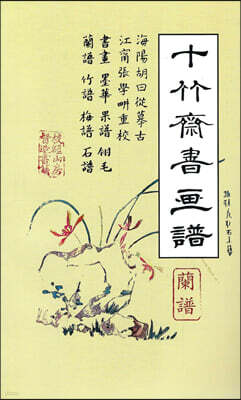 十竹齋書画譜
蘭譜
海陽胡曰從摹古
江甯張學畊重校
書畫 墨華 果譜 翎毛
蘭譜 竹譜 梅譜 石譜
校經山房
督造書籍